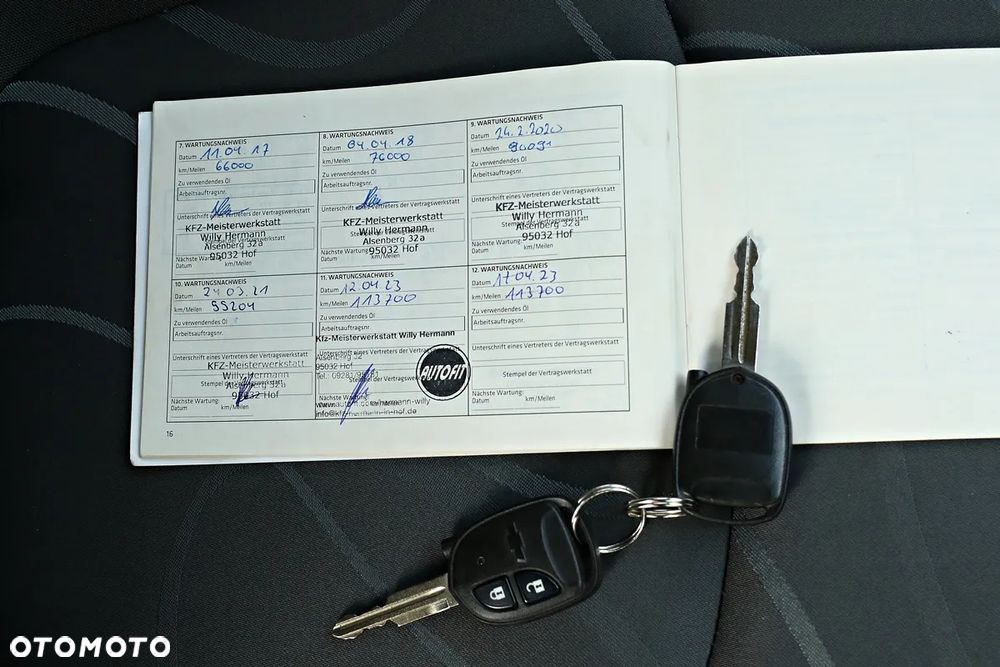 7. WARTUNGSNACHWEIS
Datum 11.04.17
km/Meilen 66000
Zu verwendendes Öl
Arbeitsauftragsnr.
Unterschrift eines Vertreters der Vertragswerkstatt
KFZ-Meisterwerkstatt
Willy Hermann
Alsenberg 32a
95032 Hof
Nächste Wartung:
Datum km/Meilen
8. WARTUNGSNACHWEIS
Datum 04.04.18
km/Meilen 76000
Zu verwendendes Öl
Arbeitsauftragsnr.
Unterschrift eines Vertreters der Vertragswerkstatt
KFZ-Meisterwerkstatt
Willy Hermann
Alsenberg 32a
95032 Hof
Nächste Wartung:
Datum km/Meilen
9. WARTUNGSNACHWEIS
Datum 24.2.2020
km/Meilen 90091
Zu verwendendes Öl
Arbeitsauftragsnr.
Unterschrift eines Vertreters der Vertragswerkstatt
KFZ-Meisterwerkstatt
Willy Hermann
Alsenberg 32a
95032 Hof
Nächste Wartung:
Datum km/Meilen
10. WARTUNGSNACHWEIS
Datum 24.03.21
km/Meilen 99204
Zu verwendendes Öl
Arbeitsauftragsnr.
Unterschrift eines Vertreters der Vertragswerkstatt
KFZ-Meisterwerkstatt
Willy Hermann
Stempel der Vertragswerkstatt
Alsenberg 32a
95032 Hof
Nächste Wartung:
Datum km/Meilen
11. WARTUNGSNACHWEIS
Datum 12.04.23
km/Meilen 113700
Zu verwendendes Öl
Arbeitsauftragsnr.
Kfz-Meisterwerkstatt Willy Hermann
Unterschrift eines Vertreters der Vertragswerkstatt
Alsenberg 32
95032 Hof
Tel. 09281/
Stempel der
AUTOFIT
Nächste Wartung:
Datum km/Meilen
12. WARTUNGSNACHWEIS
Datum 17.04.23
km/Meilen 113700
Zu verwendendes Öl
Arbeitsauftragsnr.
Unterschrift eines Vertreters der Vertragswerkstatt
Stempel der Vertragswerkstatt
Nächste Wartung:
Datum km/Meilen
16
OTOMOTO